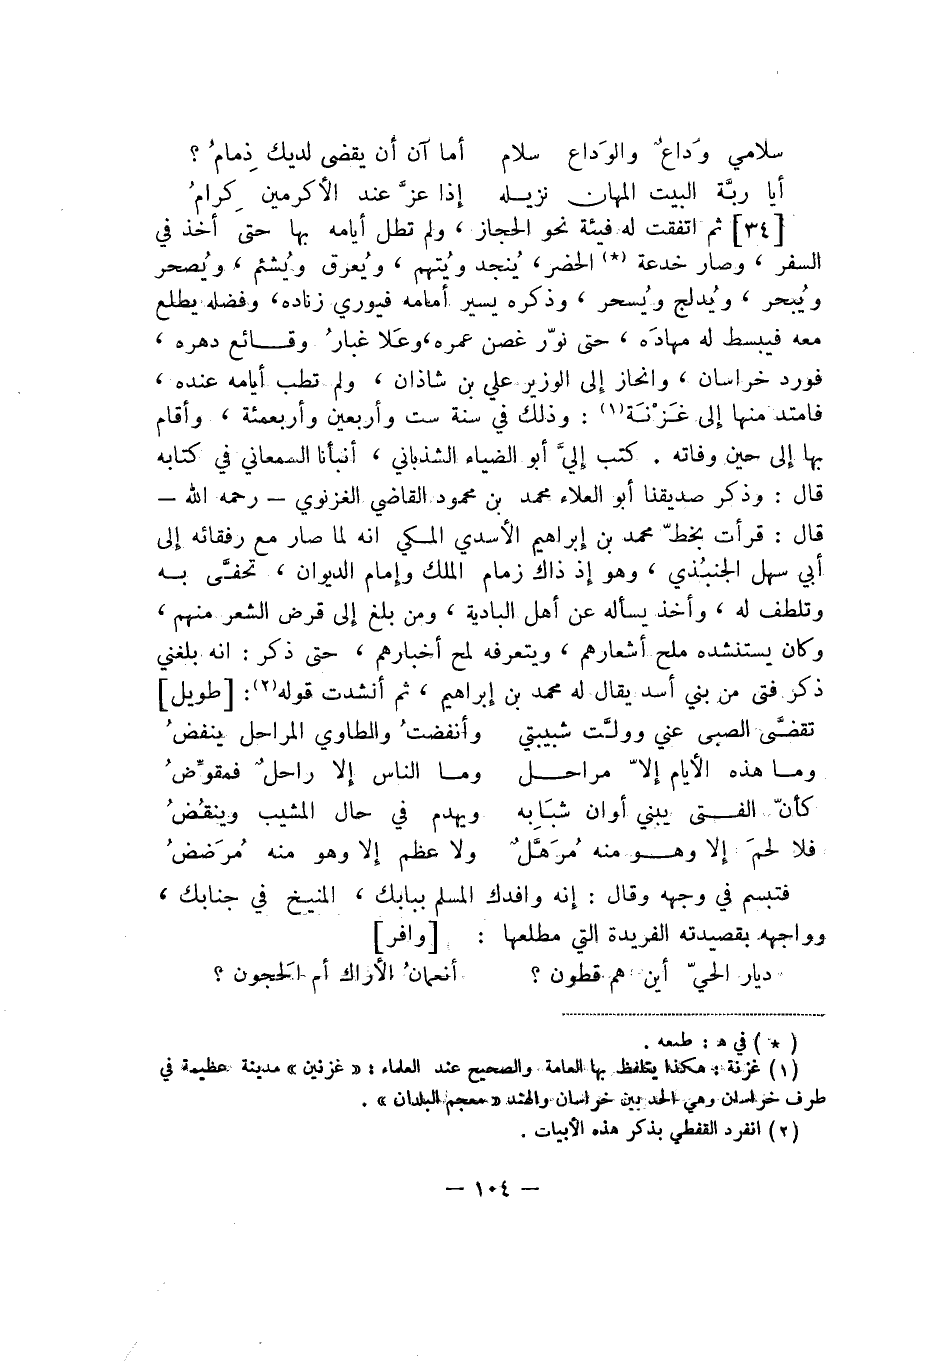 سلامي وَداعٌ والوَداع سلام أما آن أن يقضى لديك ذِمامُ ؟
أيا ربَّة البيت المهان نزيله إذا عزَّ عند الأكرمين كِرامُ
[٣٤] ثم اتفقت له فيئة نحو الحجاز ، ولم تطل أيامه بها حتى أخذ في
السفر ، وصار خدعة (*) الحضر ، يُنجد ويُتهم ، ويُعرق ويُشئم ، ويُصحر
ويُبحر ، ويُدلج ويُسحر ، وذكره يسير أمامه فيوري زناده ، وفضله يطلع
معه فيبسط له مهادَه ، حتى نوّر غصن عمره ، وعَلا غبارُ وقائع دهره ،
فورد خراسان ، وانحاز إلى الوزير علي بن شاذان ، ولم تطب أيامه عنده ،
فامتد منها إلى غَزْنَة(١) : وذلك في سنة ست وأربعين وأربعمئة ، وأقام
بها إلى حين وفاته . كتب إليَّ أبو الضياء الشذباني ، أنبأنا السمعاني في كتابه
قال : وذكر صديقنا أبو العلاء محمد بن محمود القاضي الغزنوي – رحمه الله –
قال : قرأت بخطّ محمد بن إبراهيم الأسدي المكي انه لما صار مع رفقائه إلى
أبي سهل الجنبُذي ، وهو إذ ذاك زمام الملك وإمام الديوان ، تحفَّى به
وتلطف له ، وأخذ يسأله عن أهل البادية ، ومن بلغ إلى قرض الشعر منهم ،
وكان يستنشده ملح أشعارهم ، ويتعرفه لمح أخبارهم ، حتى ذكر : انه بلغني
ذكر فتى من بني أسد يقال له محمد بن إبراهيم ، ثم أنشدت قوله(٢): [طويل]
تقضَّى الصبى عني وولَّت شبيبتي وأنفضتُ والطاوي المراحل ينفضُ
وما هذه الأيام إلاّ مراحل وما الناس إلا راحلٌ فمقوِّضُ
كأنّ الفتى يبني أوان شبَابِه ويهدم في حال المشيب وينقُضُ
فلا لحمَ إلا وهو منه مُرَهَّلٌ ولا عظم إلا وهو منه مُرَضضُ
فتبسم في وجهه وقال : إنه وافدك المسلم ببابك ، المنيخ في جنابك ،
وواجهه بقصيدته الفريدة التي مطلعها : [وافر]
ديار الحيّ أين هم قطون ؟ أنعمانُ الأراك أم الحَجون ؟
( * ) في ه : طبعه .
(١) غزنة : هكذا يتلفظ بها العامة والصحيح عند العلماء : « غزنين » مدينة عظيمة في
طرف خراسان وهي الحد بين خراسان والهند « معجم البلدان » .
(٢) انفرد القفطي بذكر هذه الأبيات .
– ١٠٤ –